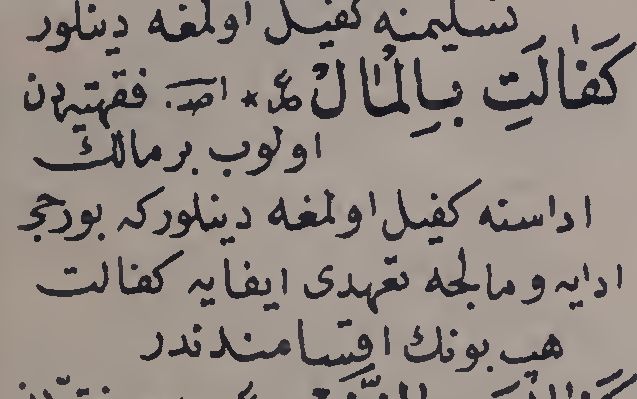 تسليمنه كفيل اولمغه دينلور
كَفَالَتِ بِالْمَالْ فقهيه دن
اولوب بر مالك
اداسنه كفيل اولمغه دينلور كه بورجى
ادايه و مالجه تعهدى ايفايه كفالت
هپ بونك اقسامندندر